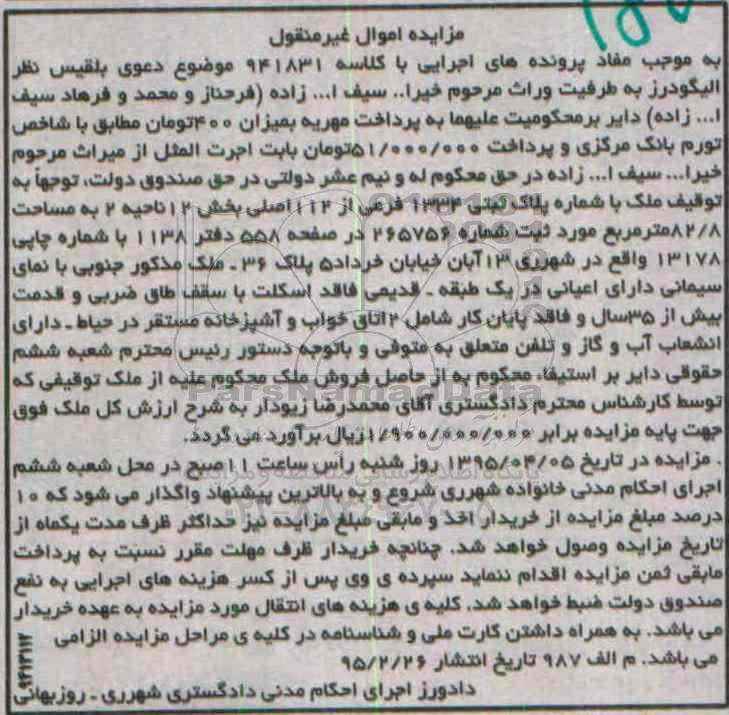 مزایده اموال غیرمنقول
به موجب مفاد پرونده های اجرایی با کلاسه ۹۴۱۸۳۱ موضوع دعوی بلقیس نظر
الیگودرز به طرفیت وراث مرحوم خیرا.. سیف ا... زاده (فرحناز و محمد و فرهاد سیف
ا... زاده) دایر بر محکومیت علیهما به پرداخت مهریه بمیزان ۴۰۰تومان مطابق با شاخص
تورم بانک مرکزی و پرداخت ۵۱/۰۰۰/۰۰۰تومان بابت اجرت المثل از میراث مرحوم
خیرا... سیف ا... زاده در حق محکوم له و نیم عشر دولتی در حق صندوق دولت، توجهاً به
توقیف ملک با شماره پلاک ثبتی ۱۳۳۴ فرعی از ۱۱۲اصلی بخش ۱۲ناحیه ۲ به مساحت
۸۲/۸مترمربع مورد ثبت شماره ۲۶۵۷۵۶ در صفحه ۵۵۸ دفتر ۱۱۳۸ با شماره چاپی
۱۳۱۷۸ واقع در شهرری ۱۳آبان خیابان خرداد۵ پلاک ۳۶ ـ ملک مذکور جنوبی با نمای
سیمانی دارای اعیانی در یک طبقه ـ قدیمی فاقد اسکلت با سقف طاق ضربی و قدمت
بیش از ۳۵سال و فاقد پایان کار شامل ۲اتاق خواب و آشپزخانه مستقر در حیاط ـ دارای
انشعاب آب و گاز و تلفن متعلق به متوفی و باتوجه دستور رئیس محترم شعبه ششم
حقوقی دایر بر استیفاء محکوم به از حاصل فروش ملک محکوم علیه از ملک توقیفی که
توسط کارشناس محترم دادگستری آقای محمدرضا زیودار به شرح ارزش کل ملک فوق
جهت پایه مزایده برابر ۱/۹۰۰/۰۰۰/۰۰۰ریال برآورد می گردد.
. مزایده در تاریخ ۱۳۹۵/۰۴/۰۵ روز شنبه رأس ساعت ۱۱صبح در محل شعبه ششم
اجرای احکام مدنی خانواده شهرری شروع و به بالاترین پیشنهاد واگذار می شود که ۱۰
درصد مبلغ مزایده از خریدار اخذ و مابقی مبلغ مزایده نیز حداکثر ظرف مدت یکماه از
تاریخ مزایده وصول خواهد شد. چنانچه خریدار ظرف مهلت مقرر نسبت به پرداخت
مابقی ثمن مزایده اقدام ننماید سپرده ی وی پس از کسر هزینه های اجرایی به نفع
صندوق دولت ضبط خواهد شد. کلیه ی هزینه های انتقال مورد مزایده به عهده خریدار
می باشد. به همراه داشتن کارت ملی و شناسنامه در کلیه ی مراحل مزایده الزامی
می باشد. م الف ۹۸۷ تاریخ انتشار ۹۵/۲/۲۶
دادورز اجرای احکام مدنی دادگستری شهرری ـ روزبهانی
ParsNamadData